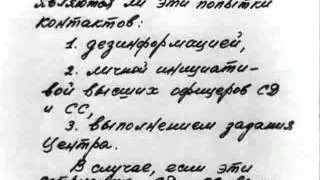 являются ли эти попытки
контактов:
1. дезинформацией,
2. личной инициати-
вой высших офицеров СД
и СС,
3. выполнением задания
Центра.
В случае, если эти